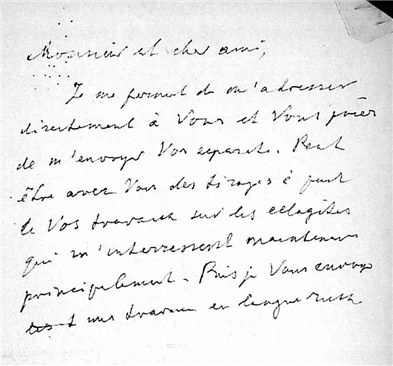 Monsieur et cher ami,
Je me permet de m'adresser
directement à Vous et Vous prier
de m'envoyer Vos separata. Peut
être avez Vous des tirages à part
de Vos travaux sur les
qui m'interressent maintenant
principalement. Puis je Vous envoyer
mes travaux en langue russe